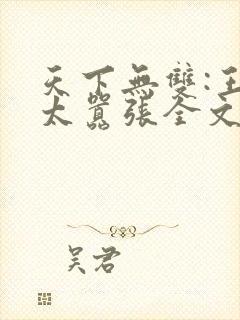 天下無雙:王
太囂張全文
吴君